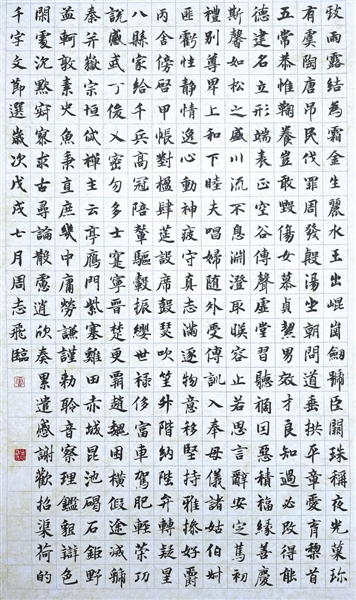 致雨露結為霜金生麗水玉出崐崗劍號巨闕珠稱夜光菓珍
有虞陶唐吊民伐罪周發殷湯坐朝問道垂拱平章愛育黎首
五常恭惟鞠養豈敢毀傷女慕貞絜男效才良知過必改得能
德建名立形端表正空谷傳聲虛堂習聽禍因惡積福緣善慶
斯馨如松之盛川流不息淵澄取暎容止若思言辭安定篤初
禮別尊卑上和下睦夫唱婦隨外受傅訓入奉母儀諸姑伯叔
匪虧性靜情逸心動神疲守真志滿逐物意移堅持雅操好爵
丙舍傍啓甲帳對楹肆筵設席鼓瑟吹笙升階納陛弁轉疑星
八縣家給千兵高冠陪輦驅轂振纓世祿侈富車駕肥輕策功
說感武丁俊乂密勿多士寔寧晉楚更霸趙魏困橫假途滅虢
秦并嶽宗恒岱禪主云亭鴈門紫塞雞田赤城昆池碣石鉅野
孟軻敦素史魚秉直庶幾中庸勞謙謹勑聆音察理鑑貌辯色
閑處沉默寂寥求古尋論散慮逍遙欣奏累遣慼謝歡招渠荷的
千字文節選歲次戊戌七月周志飛臨